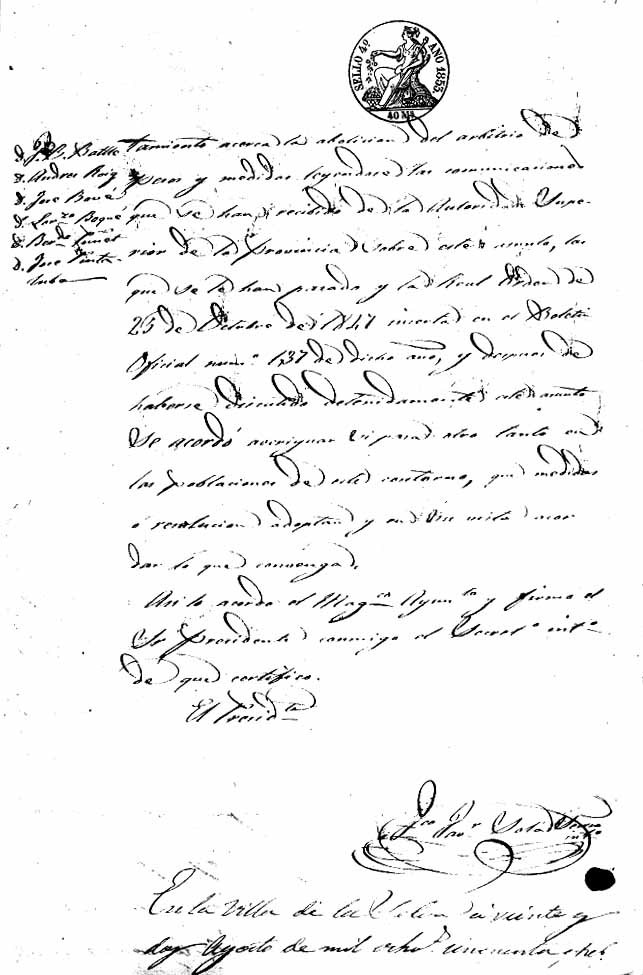 SELLO 4º AÑO 1853.
40 Ms
D. J. B. Batlle
D. Andres Roig
D. Jose Boxé
D. Lorzo Boqué
D. Jose
tamiento acerca la abolicion del arbitrio de
pesos y medidas leyendose las comunicaciones
que se han recibido de la Autoridad Supe-
rior de la provincia sobre este asunto, las
que se le han pasado y la Real Orden de
25 de Octubre de 1847 inserta en el Boletin
Oficial num.º 137 de dicho año, y despues de
haberse discutido detenidamente este asunto
Se acordó averiguar si pasa otro tanto en
las poblaciones de este contorno, que medidas
ó resolucion adoptan y en su vista acor
dar lo que convenga.
Asi lo acordó el Mag.co Ayun.to y firma el
Sr Presidente conmigo el Secret.º int.º
de que certifico.
El Presid.te
Fco Jav.r Sala
En la Villa de la á veinte y
dos Agosto de mil ocho.s cincuenta